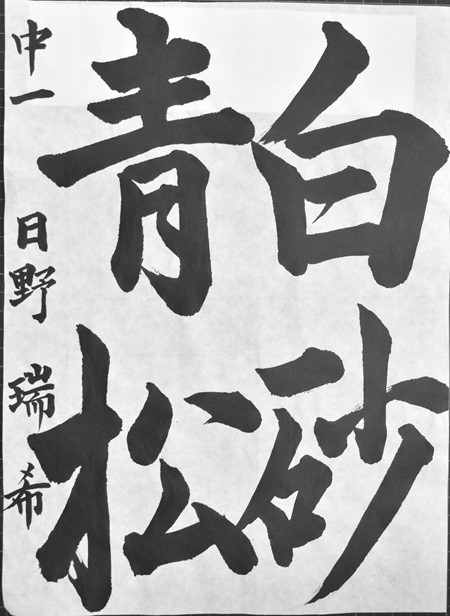 白砂
青松
中一 日野 瑞希